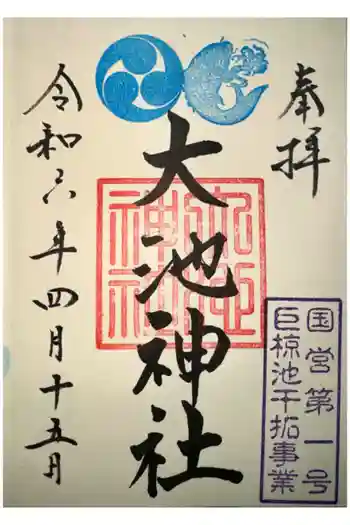 奉拝
大池神社
令和六年四月十五月
国営第一号
巨椋池干拓事業